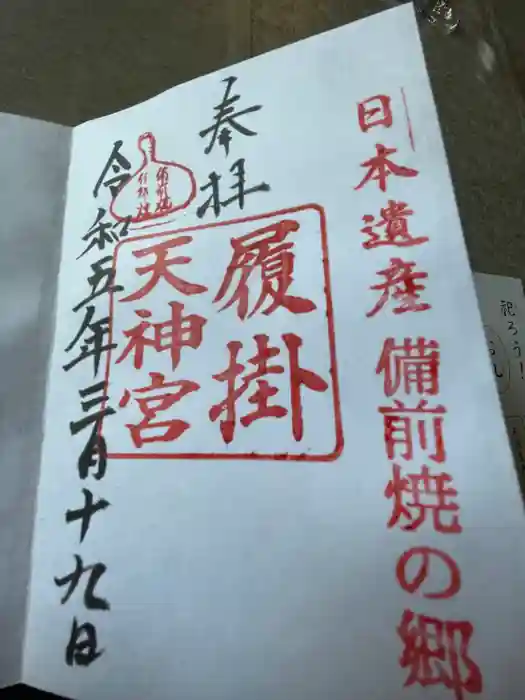 日本遺産 備前焼の郷
奉拝
備前焼
履掛
天神宮
令和五年三月十九日
祀ろう!